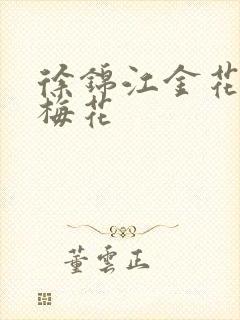 徐錦江金花
梅花
董雲正